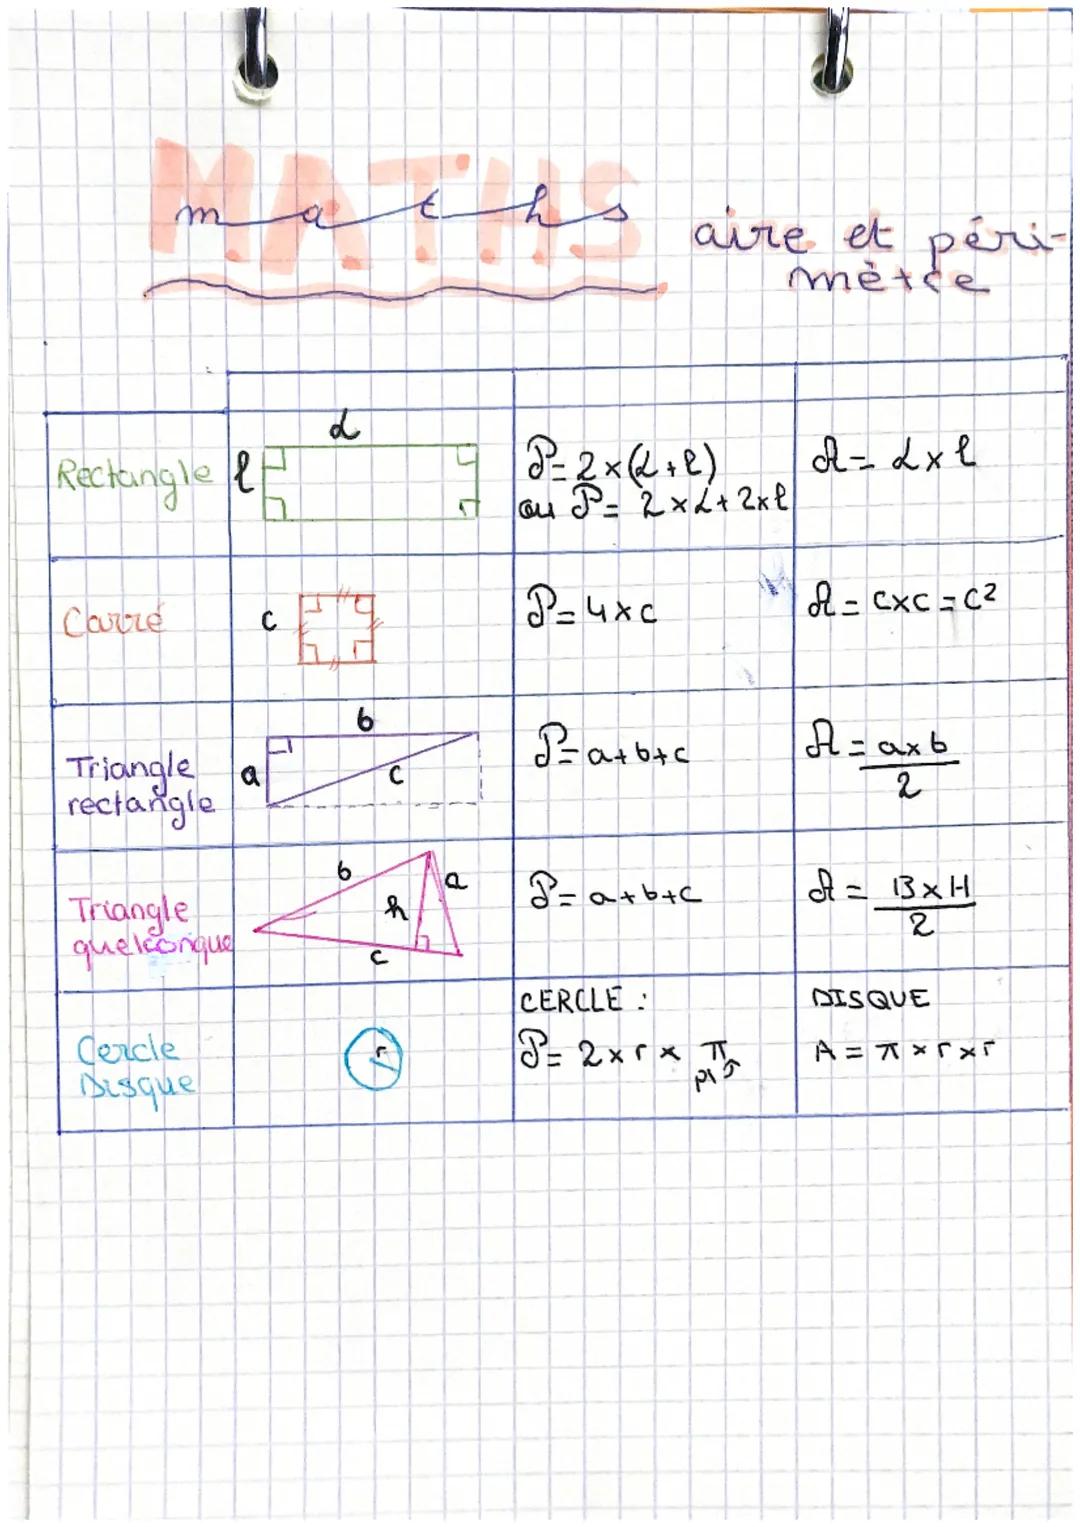 MATHS
maths
aire et péri-
mètre
Rectangle
L
l
P = 2 × (L + l)
ou P = 2 × L + 2 × l
A = L × l
Carré
c
P = 4 × c
A = c × c = c²
Triangle
rectangle
b
a
c
P = a + b + c
A = a × b
2
Triangle
quelconque
b
h
a
c
P = a + b + c
A = B × H
2
Cercle
Disque
r
CERCLE :
P = 2 × r × π
pi
DISQUE
A = π × r × r